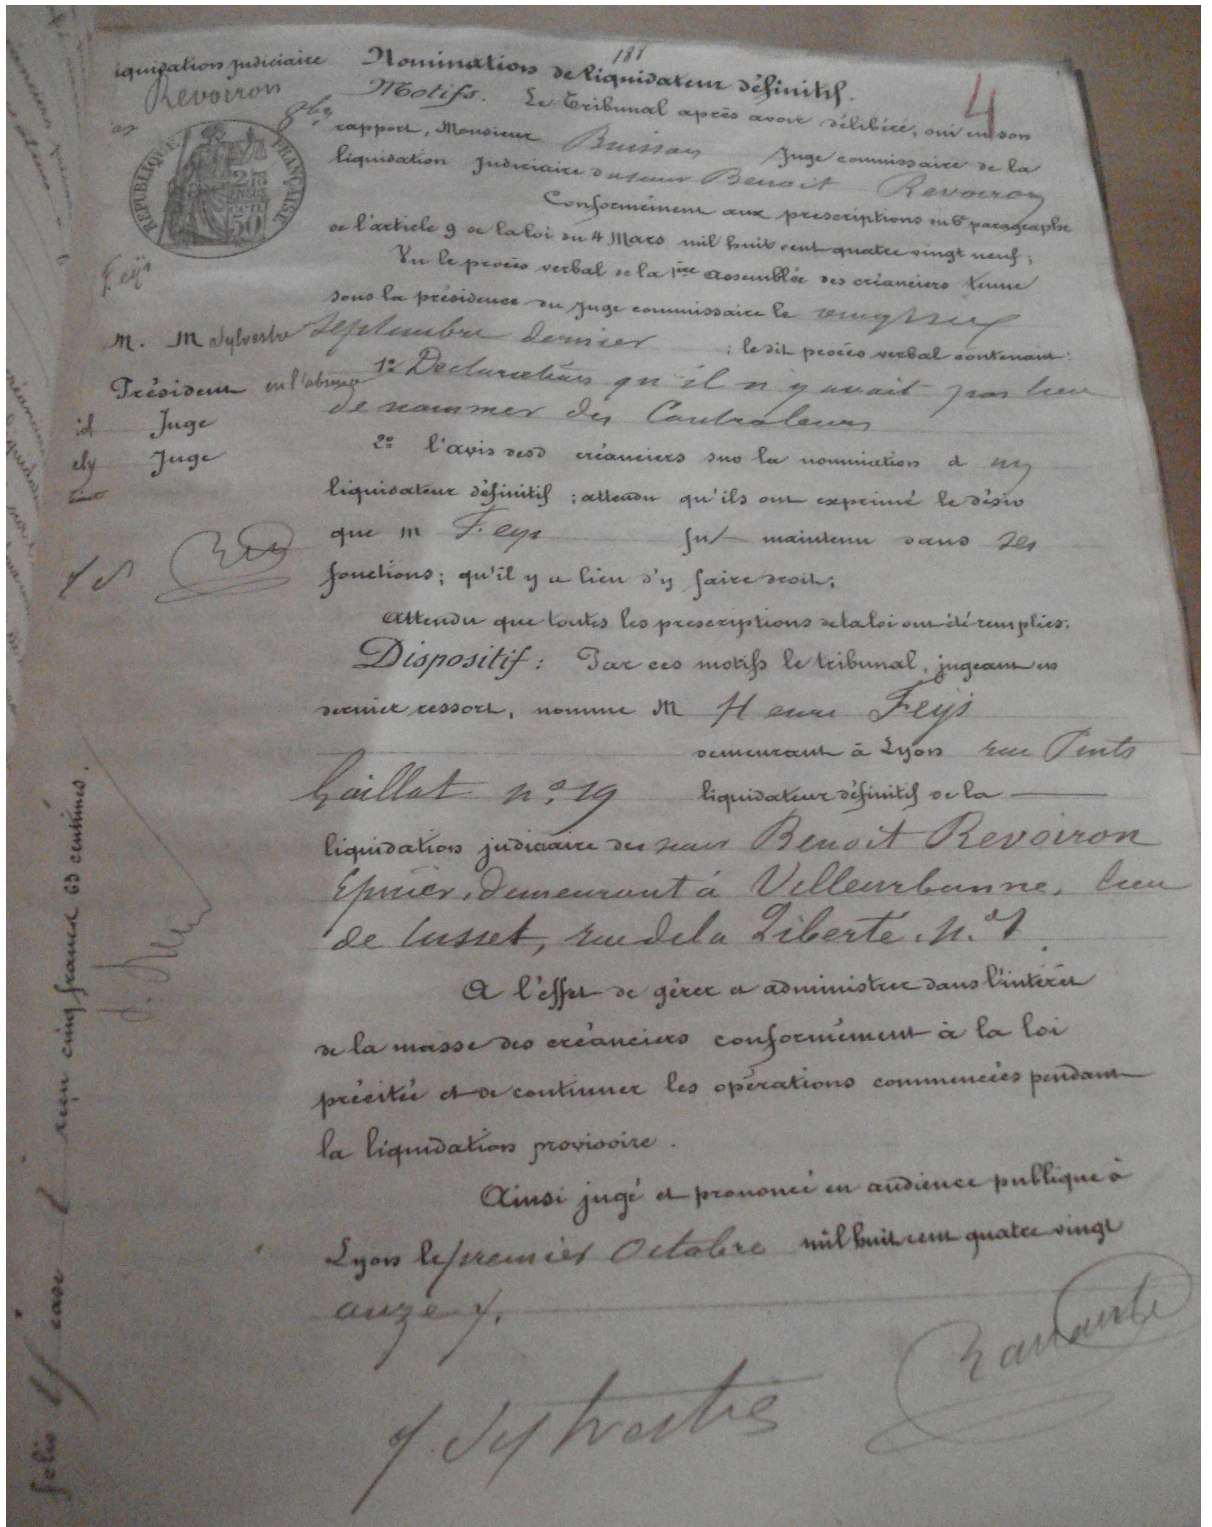 188
4
iquidation judiciaire
Revoiron
RÉPUBLIQUE FRANÇAISE
2 F 50
Feÿs
M. M Sylvestre
Président en l'absence
id Juge
ely Juge
Nomination de liquidateur définitif.
Motifs. Le Tribunal après avoir délibéré, oui en son
rapport, Monsieur Buisson Juge commissaire de la
liquidation judiciaire du sieur Benoit Revoiron
Conformément aux prescriptions du 6e paragraphe
de l'article 9 de la loi du 4 Mars mil huit cent quatre vingt neuf;
Vu le procès verbal de la 1ère assemblée des créanciers tenue
sous la présidence du Juge commissaire le
septembre dernier ; le dit procès verbal contenant:
1º Déclaration qu'il n'y avait pas lieu
de nommer des Controleurs
2º l'avis desd créanciers sur la nomination d un
liquidateur définitif ; attendu qu'ils ont exprimé le désir
que M Feys fut maintenu dans ses
fonctions; qu'il y a lieu d'y faire droit;
Attendu que toutes les prescriptions de la loi ont été remplies.
Dispositif: Par ces motifs le tribunal, jugeant en
dernier ressort, nomme M Henri Feÿs
demeurant à Lyon rue Puits
Gaillot nº 19 liquidateur définitif de la
liquidation judiciaire du sieur Benoit Revoiron
Epicier, demeurant à Villeurbanne, lieu
de Cusset, rue de la Liberté, Nº 1
A l'effet de gérer et administrer dans l'intérêt
de la masse des créanciers conformément à la loi
précitée et de continuer les opérations commencées pendant
la liquidation provisoire.
Ainsi jugé et prononcé en audience publique à
Lyon le premier Octobre mil huit cent quatre vingt
onze
Sylvestre
folio case reçu cinq francs 63 centimes.